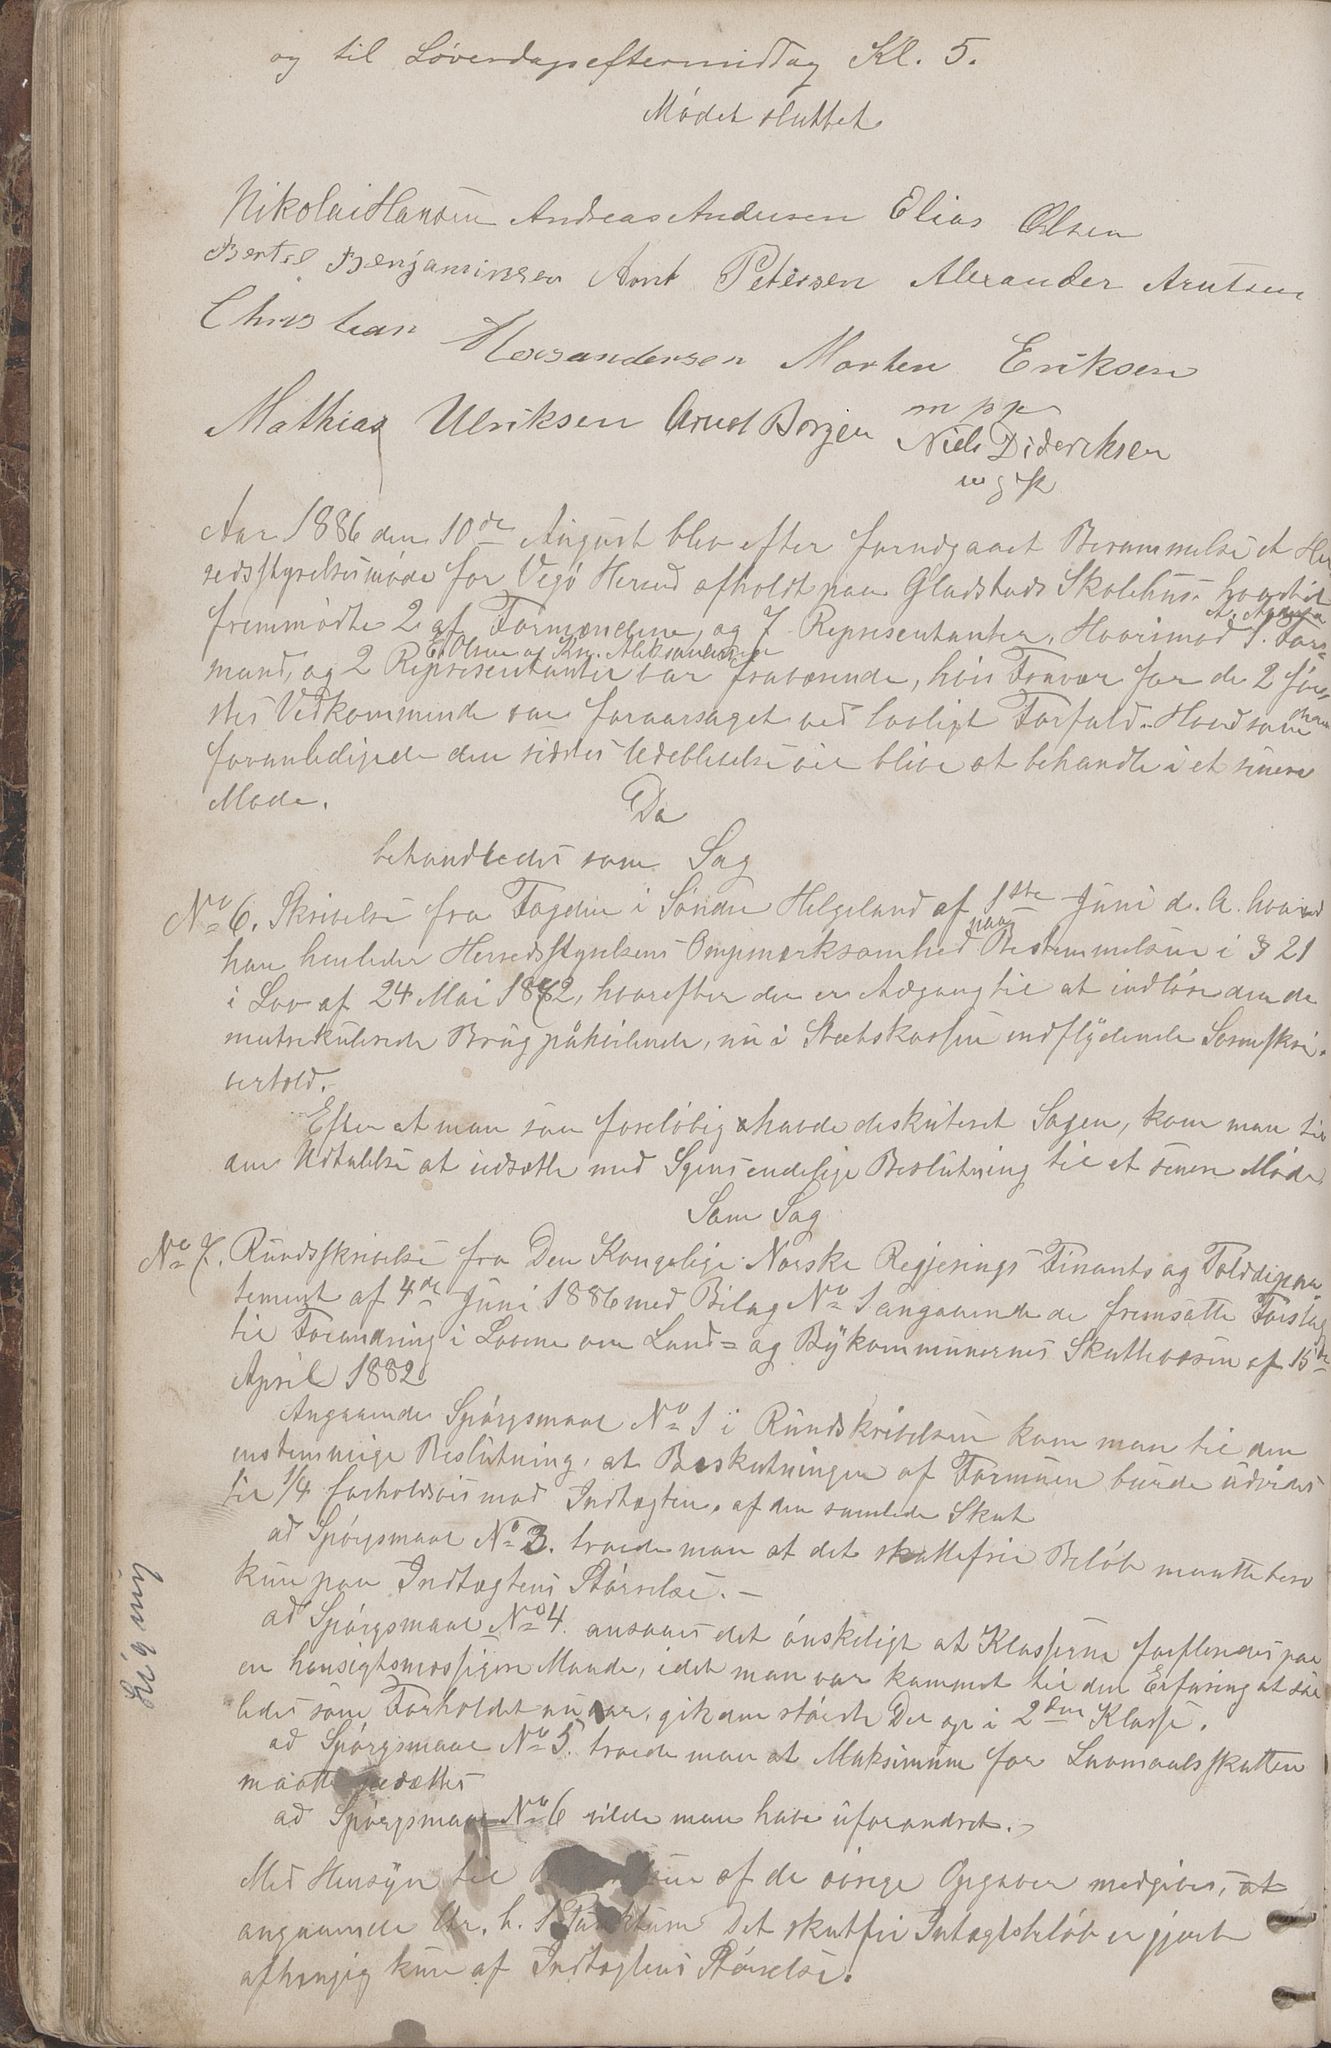 og til Løverdagseftermiddag Kl. 5.
Mødet sluttet
Nikolai Hansen Andreas Andersen Elias Olsen
Bertel Benjaminsen Arnt Petersen Alexander Arntsen
Christian Alexsandersen Morten Eriksen
m p p
Mathias Ulriksen Arnt Borgen Niels Dideriksen
Aar 1886 den 10de August blev efter forudgaaet Berammelse et Her
redsstyrelsesmøde for Vegø Herred afholdt paa Gladstads Skolehus. hvortil
fremmødte 2 af Formændene, og 7 Representanter, Hvorimod 1. For-
E. Olsen og Kr. Aleksandersen
mand, og 2 Representanter var fraværende, hvis Fravær for de 2 før-
stes Vedkommende var foraarsaget ved lovligt Forfald. Hvad som
foranledigede den sidstes Udeblivelse vil blive at behandle i et senere
Møde.
Da
behandledes som Sag
No 6. Skrivelse fra Fogden i Søndre Helgeland af 1ste Juni d. A. hvorved
han henleder Herredsstyrelsens Opmærksomhed paa Bestemmelsen i § 21
i Lov af 24 Mai 1882, hvorefter der er Adgang til at indløse den de
matrikulerede Brug påhvilende, nu i Statskassen indflydende Sorenskri-
vertold.
Efter at man saa foreløbig havde diskuteret Sagen, kom man til
den Udtalelse at udsætte med Sagens endelige Beslutning til et senere Møde.
Som Sag
No 7. Rundsskrivelse fra Den Kongelige Norske Regjerings Finants og Tolddepar-
tement af 4de Juni 1886 med Bilag No 1 angaaende de fremsatte Forslag
til Forandring i Lovene om Land- og Bykommunernes Skattevæsen af 15de
April 1882
Angaaende Spørgsmaal No 1 i Rundskrivelsen kom man til den
enstemmige Beslutning, at Beskatningen af Formuen burde udvides
til 1/4 forholdsvis mod Indtægten, af den samlede Skat
ad Spørgsmaal No 3. troede man at det skattefrie Beløb maatte bero
kun paa Indtægtens Størrelse.-
ad Spørgsmaal No 4. ansaaes det ønskeligt at Klasserne fordeles paa
en hensigtsmæssigere Maade, idet man var kommet til den Erfaring at saa-
ledes som Forholdet nu var, gik den største Del op i 2den Klasse.
ad Spørgsmaal No 5. troede man at Maksimum for Lavmaalsskatten
maatte nedsættes
ad Spørgsmaal No 6 vilde man have uforandret.-
Med Hensyn til af de øvrige Opgaver medgives, at
angaaende Litr. h. 1 Punktum Det skatfri Intægtsbeløb er gjort
afhengig kun af Indtægtens Størrelse.
Ligning